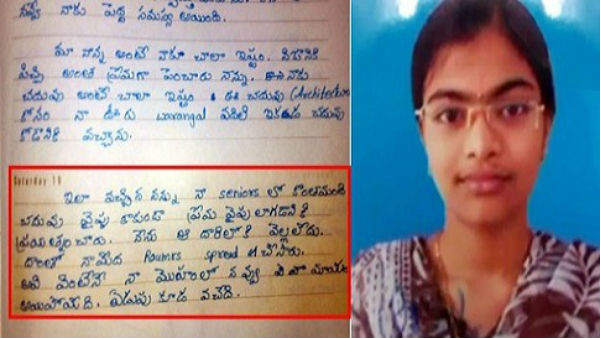 నవ్వే నాకు పెద్ద సమస్య అయింది.
మా నాన్న అంటే నాకూ చాలా ఇష్టం.
పిచ్చి అంతా ప్రేమగా పెంచారు నన్ను. నాకు
చదువు అంటే చాలా ఇష్టం ఈ చదువు (Architecture)
కోసం నా ఊరు warangal వదిలి ఇక్కడ చదువు
కోడానికి వచ్చాను.
Saturday 18
ఇలా వచ్చిన నన్ను నా seniors లో కొంతమంది
చదువు వైపు కాకుండా ప్రేమ వైపు లాగడానికి
ప్రయత్నించారు. నేను ఆ దారిలోకి వెల్లలేదు.
దాంతో నామీద Roumrs spread చేసారు.
అవి వింటేనే నా మొహంలో నవ్వు మాయం
అయిపోయేది. ఏడుపు కూడ వచేది.